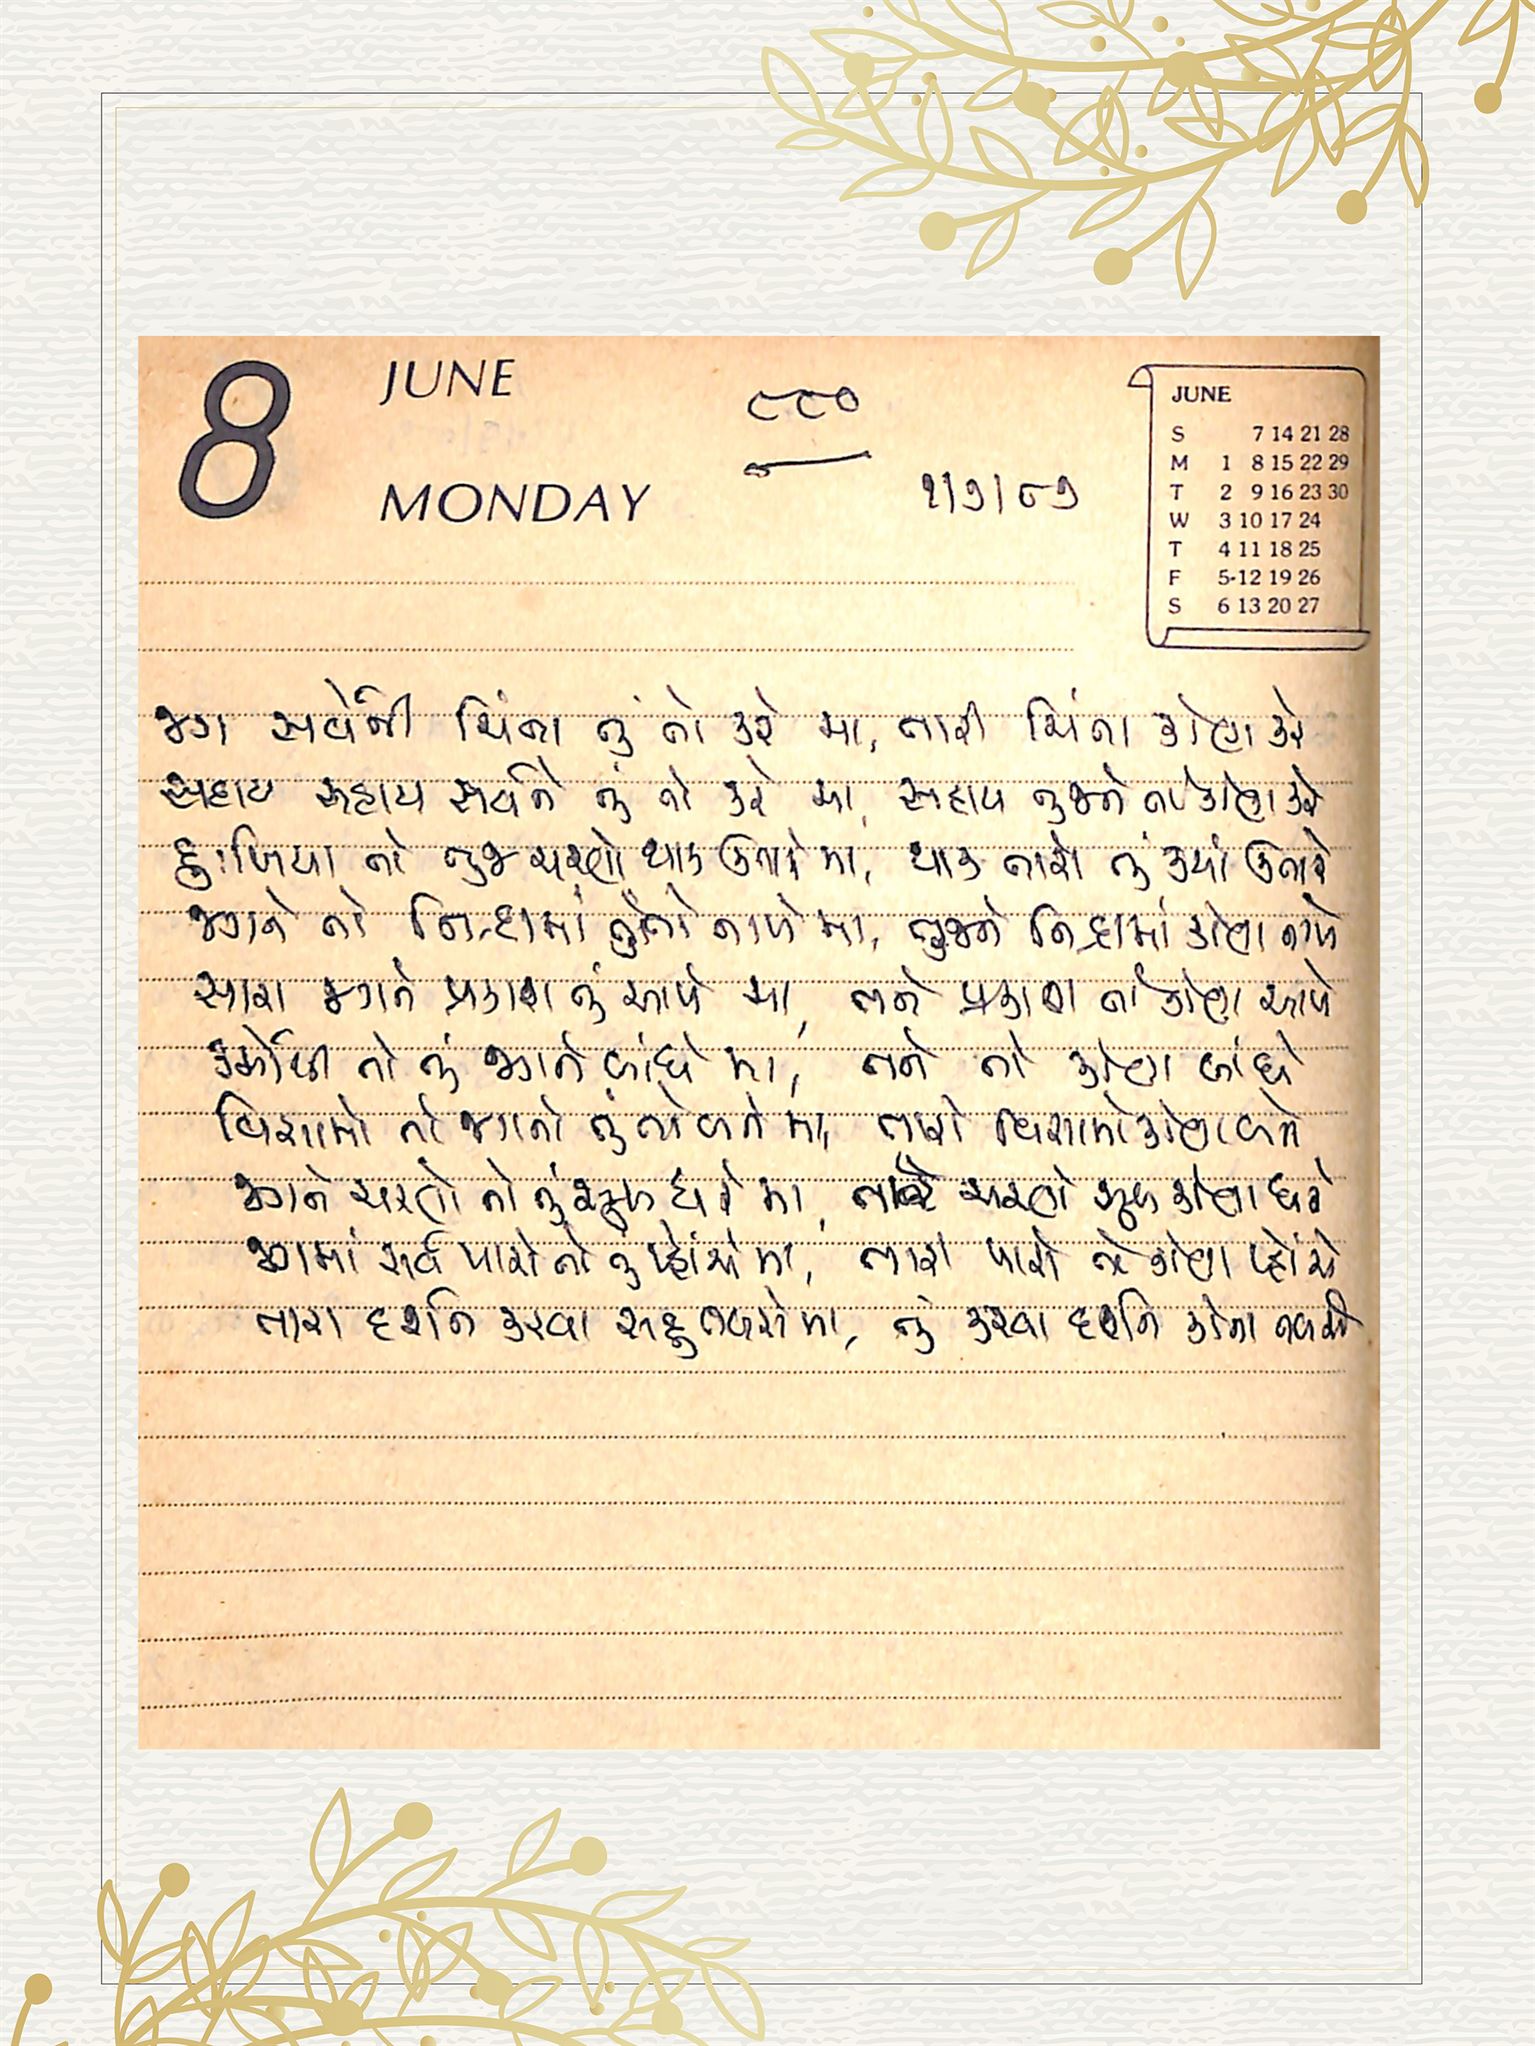 8 JUNE
૮૮૦
MONDAY
૨/૧/૮૧
JUNE
S 7 14 21 28
M 1 8 15 22 29
T 2 9 16 23 30
W 3 10 17 24
T 4 11 18 25
F 5 12 19 26
S 6 13 20 27
જગ સર્વેની ચિંતા તું તો કરે મા, તારી ચિંતા કોણ કરે
સહાય સહાય સર્વને તું તો કરે મા, સહાય તુજને તો કોણ કરે
દુઃખિયા તો તુજ ચરણે થાક ઉતારે મા, થાક તારો તું ક્યાં ઉતારે
જગને તો નિંદ્રામાં તું તો નાખે મા, તુજને નિદ્રામાં કોણ નાખે
સારા જગને પ્રકાશ તું આપે મા, તને પ્રકાશ તો કોણ આપે
કર્મોથી તો તું જગને બાંધે મા, તને તો કોણ બાંધે
વિસામો તો જગનો તું તો બને મા, તારો વિસામો કોણ બને
જગને ચરણે તો તું સુખ ધરે મા, તારે ચરણે સુખ કોણ ધરે
જગમાં સર્વ પાસે તો તું પ્હોંચે મા, તારી પાસે તો કોણ પ્હોંચે
તારા દર્શન કરવા સહુ તલસે મા, તું કરવા દર્શન કોના તલસે